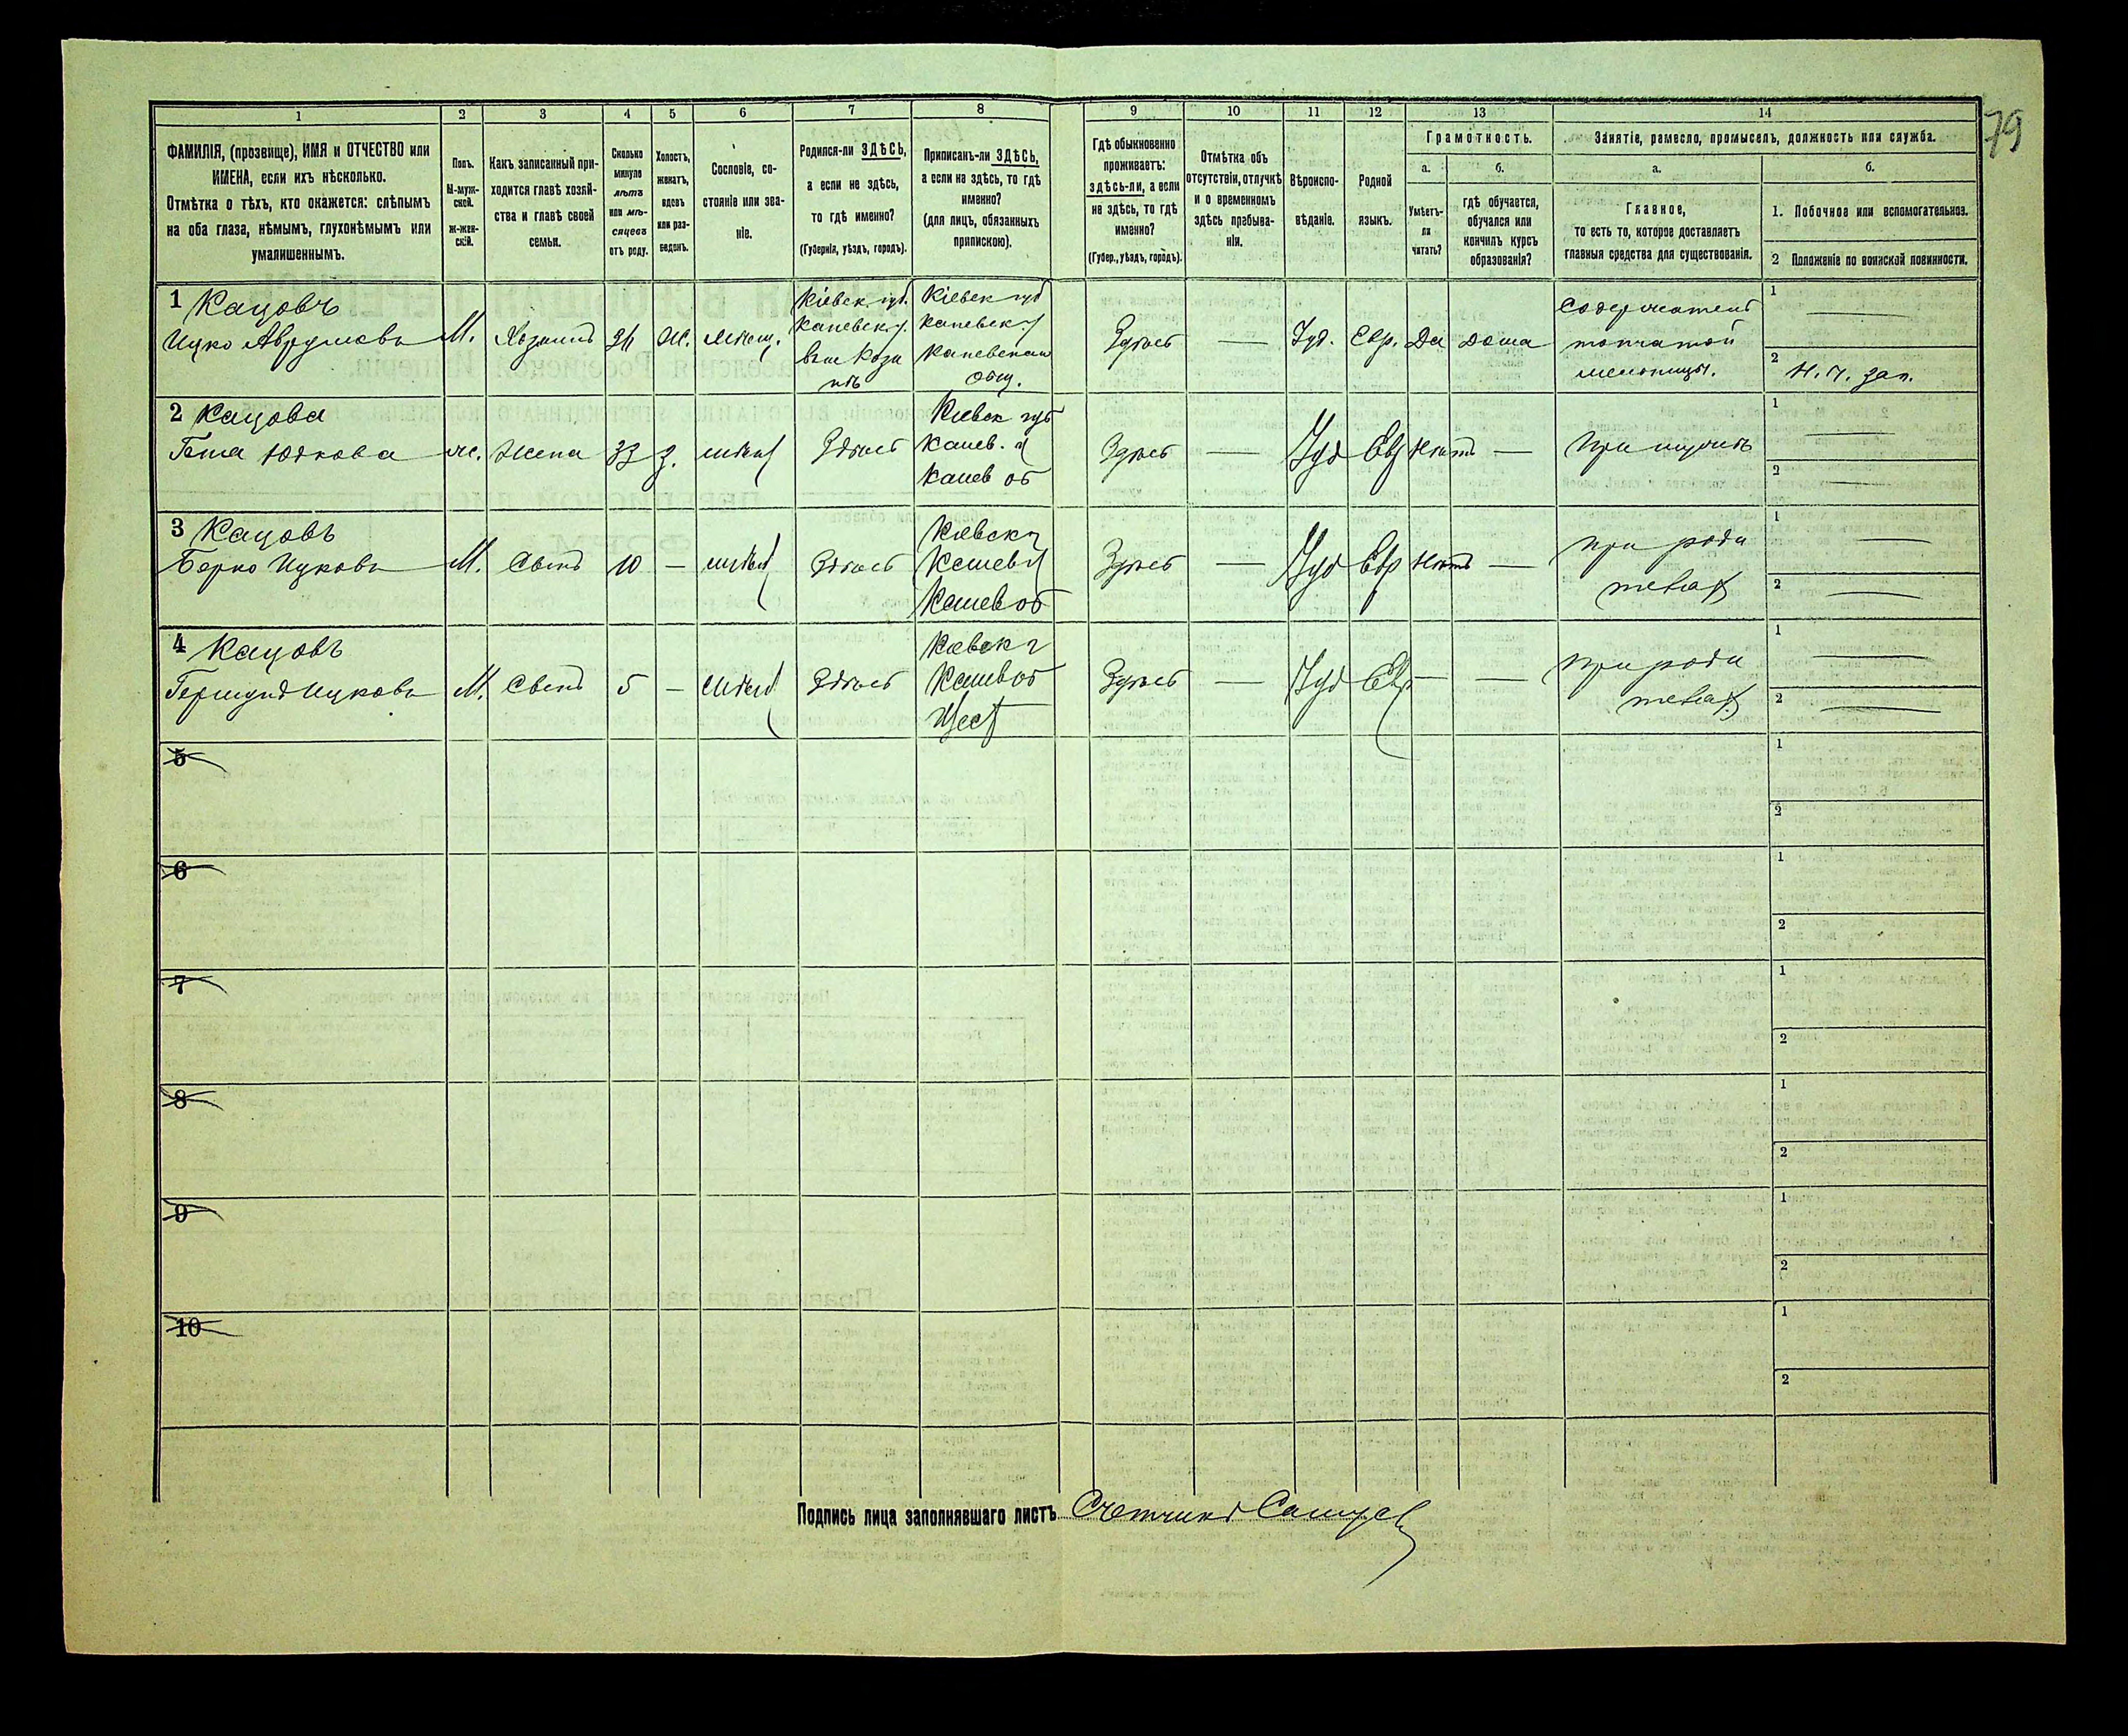 79
1 2 3 4 5 6 7 8 9 10 11 12 13 14
ФАМИЛІЯ, (прозвище), ИМЯ и ОТЧЕСТВО или
ИМЕНА, если ихъ нѣсколько.
Отмѣтка о тѣхъ, кто окажется: слѣпымъ
на оба глаза, нѣмымъ, глухонѣмымъ или
умалишеннымъ.
Полъ.
М-муж-
ской.
Ж-жен-
скій.
Какъ записанный при-
ходится главѣ хозяй-
ства и главѣ своей
семьи.
Сколько
минуло
лѣтъ
или мѣ-
сяцевъ
отъ роду.
Холостъ,
женатъ,
вдовъ
или раз-
веденъ.
Сословіе, со-
стояніе или зва-
ніе.
Родился-ли ЗДѢСЬ,
а если не здѣсь,
то гдѣ именно?
(Губернія, уѣздъ, городъ).
Приписанъ-ли ЗДѢСЬ,
а если не здѣсь, то гдѣ
именно?
(для лицъ, обязанныхъ
припискою).
Гдѣ обыкновенно
проживаетъ:
здѣсь-ли, а если
не здѣсь, то гдѣ
именно?
(Губер., уѣздъ, городъ).
Отмѣтка объ
отсутствіи, отлучкѣ
и о временномъ
здѣсь пребыва-
ніи.
Вѣроиспо-
вѣданіе.
Родной
языкъ.
Грамотность.
а.
Умѣетъ-
ли
читать?
б.
гдѣ обучается,
обучался или
кончилъ курсъ
образованія?
Занятіе, ремесло, промыселъ, должность или служба.
а.
Главное,
то есть то, которое доставляетъ
главныя средства для существованія.
б.
1. Побочное или вспомогательное.
2 Положеніе по воинской повинности.
1 Кацовъ
Ицко Аврумовъ
М.
Хозяинъ
Ж.
мѣщ.
Кіевск. губ.
Каневск. у.
Кіевск губ
Каневск у
Каневскаго
общ.
Здѣсь
—
Іуд.
Евр.
Да
дома
Содержатель
топчатой
мельницы.
1 —
2
2 Кацова
Юдкова
ж.
Жена
33
З.
мѣщ
Здѣсь
Кіевск губ
Канев. у
Канев об
Здѣсь
—
Іуд
Евр
Нѣтъ
—
При мужѣ
1 —
2 —
3 Кацовъ
Берко Ицковъ
М.
Сынъ
10
—
мѣщ
Здѣсь
Кіевск г
Канев у
Канев об
Здѣсь
—
Іуд
Евр
Нѣтъ
—
При роди
теляхъ
1 —
2 —
4 Кацовъ
Ицковъ
М.
Сынъ
5
—
мѣщ
Здѣсь
Кіевск г
Канев об
Здѣсь
—
Іуд
Евр
—
—
При роди
теляхъ
1 —
2 —
5
1
2
6
1
2
7
1
2
8
1
2
9
1
2
10
1
2
Подпись лица заполнявшаго листъ Счетчикъ